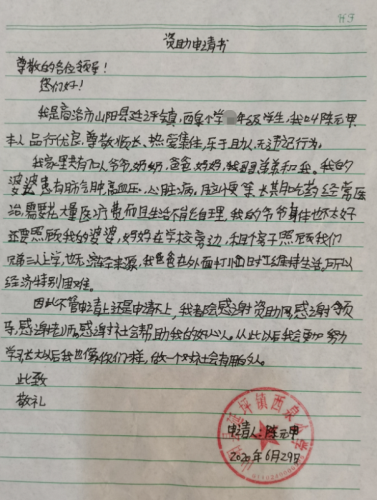 资助申请书
尊敬的各位领导!
您们好!
我是商洛市山阳县 坪镇,西泉小学 年级学生,我叫陈元甲
本人品行优良,尊敬师长、热爱集体,乐于助人,无违记行为。
我家里共有 口人爷爷,奶奶,爸爸,妈妈,我 弟弟和我。我的
婆婆患有肺气肿高血压,心脏病, 长其吃药经常医
治,需要大量医疗费而且生活不能自理,我的爷爷身体也不太好
还要照顾我的婆婆,妈妈在学校旁边,租个房子照顾我们
三上学,也无 经济来源,我爸爸在外面打临时工维持生活。所以
经济特别困难。
因此不管申请上还是申请不上,我都会感谢资助网,感谢领
导,感谢老师,感谢社会帮助我的好心人。从此以后我会更加努力
学习长大以后我也像你们一样,做一个对社会有用的人。
此致
敬礼
申请人:陈元甲
2020年6月29日
坪镇西泉小学